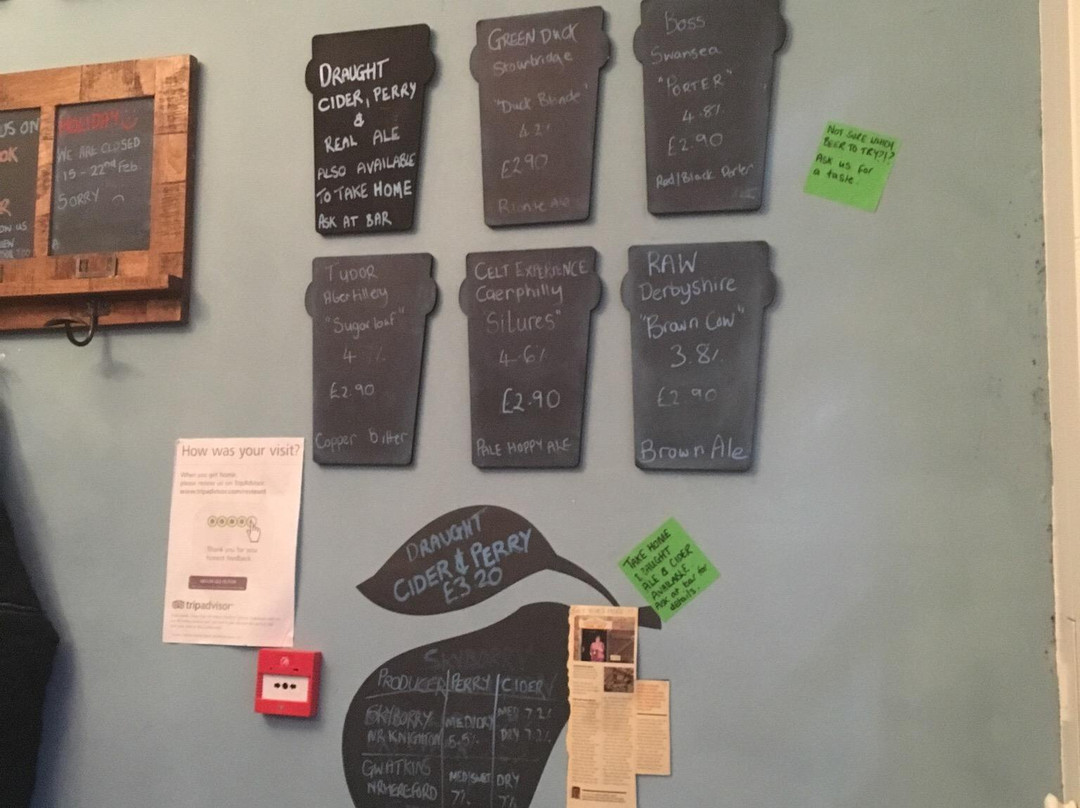 US ON
OK
R
ON US
HOLIDAY
WE ARE CLOSED
15 - 22nd Feb
SORRY
DRAUGHT
CIDER, PERRY
&
REAL ALE
ALSO AVAILABLE
TO TAKE HOME
ASK AT BAR
GREEN DUCK
Stourbridge
"Duck Blonde"
4.2%
£2.90
Blonde Ale
Boss
Swansea
"PORTER"
4.8%
£2.90
Red/Black Porter
NOT SURE WHICH
BEER TO TRY?!?
ASK US for
a taste.
TUDOR
Abertillery
"Sugarloaf"
4 %
£2.90
Copper Bitter
CELT EXPERIENCE
Caerphilly
"Silures"
4.6%
£2.90
PALE HOPPY ALE
RAW
Derbyshire
"Brown Cow"
3.8%
£2.90
Brown Ale
How was your visit?
When you get home,
please review us on TripAdvisor
www.tripadvisor.com/reviewit
Thank you for your
honest feedback.
tripadvisor
DRAUGHT
CIDER & PERRY
£3.20
TAKE HOME
DRAUGHT
ALE & CIDER
AVAILABLE.
Ask at bar for
details.
PRODUCER PERRY CIDER
SKYBORRY MED/DRY MED 7.2%
NR. KNIGHTON 5.5% DRY 7.2%
GWATKING MED/SWEET DRY
NR HEREFORD 7% 7%